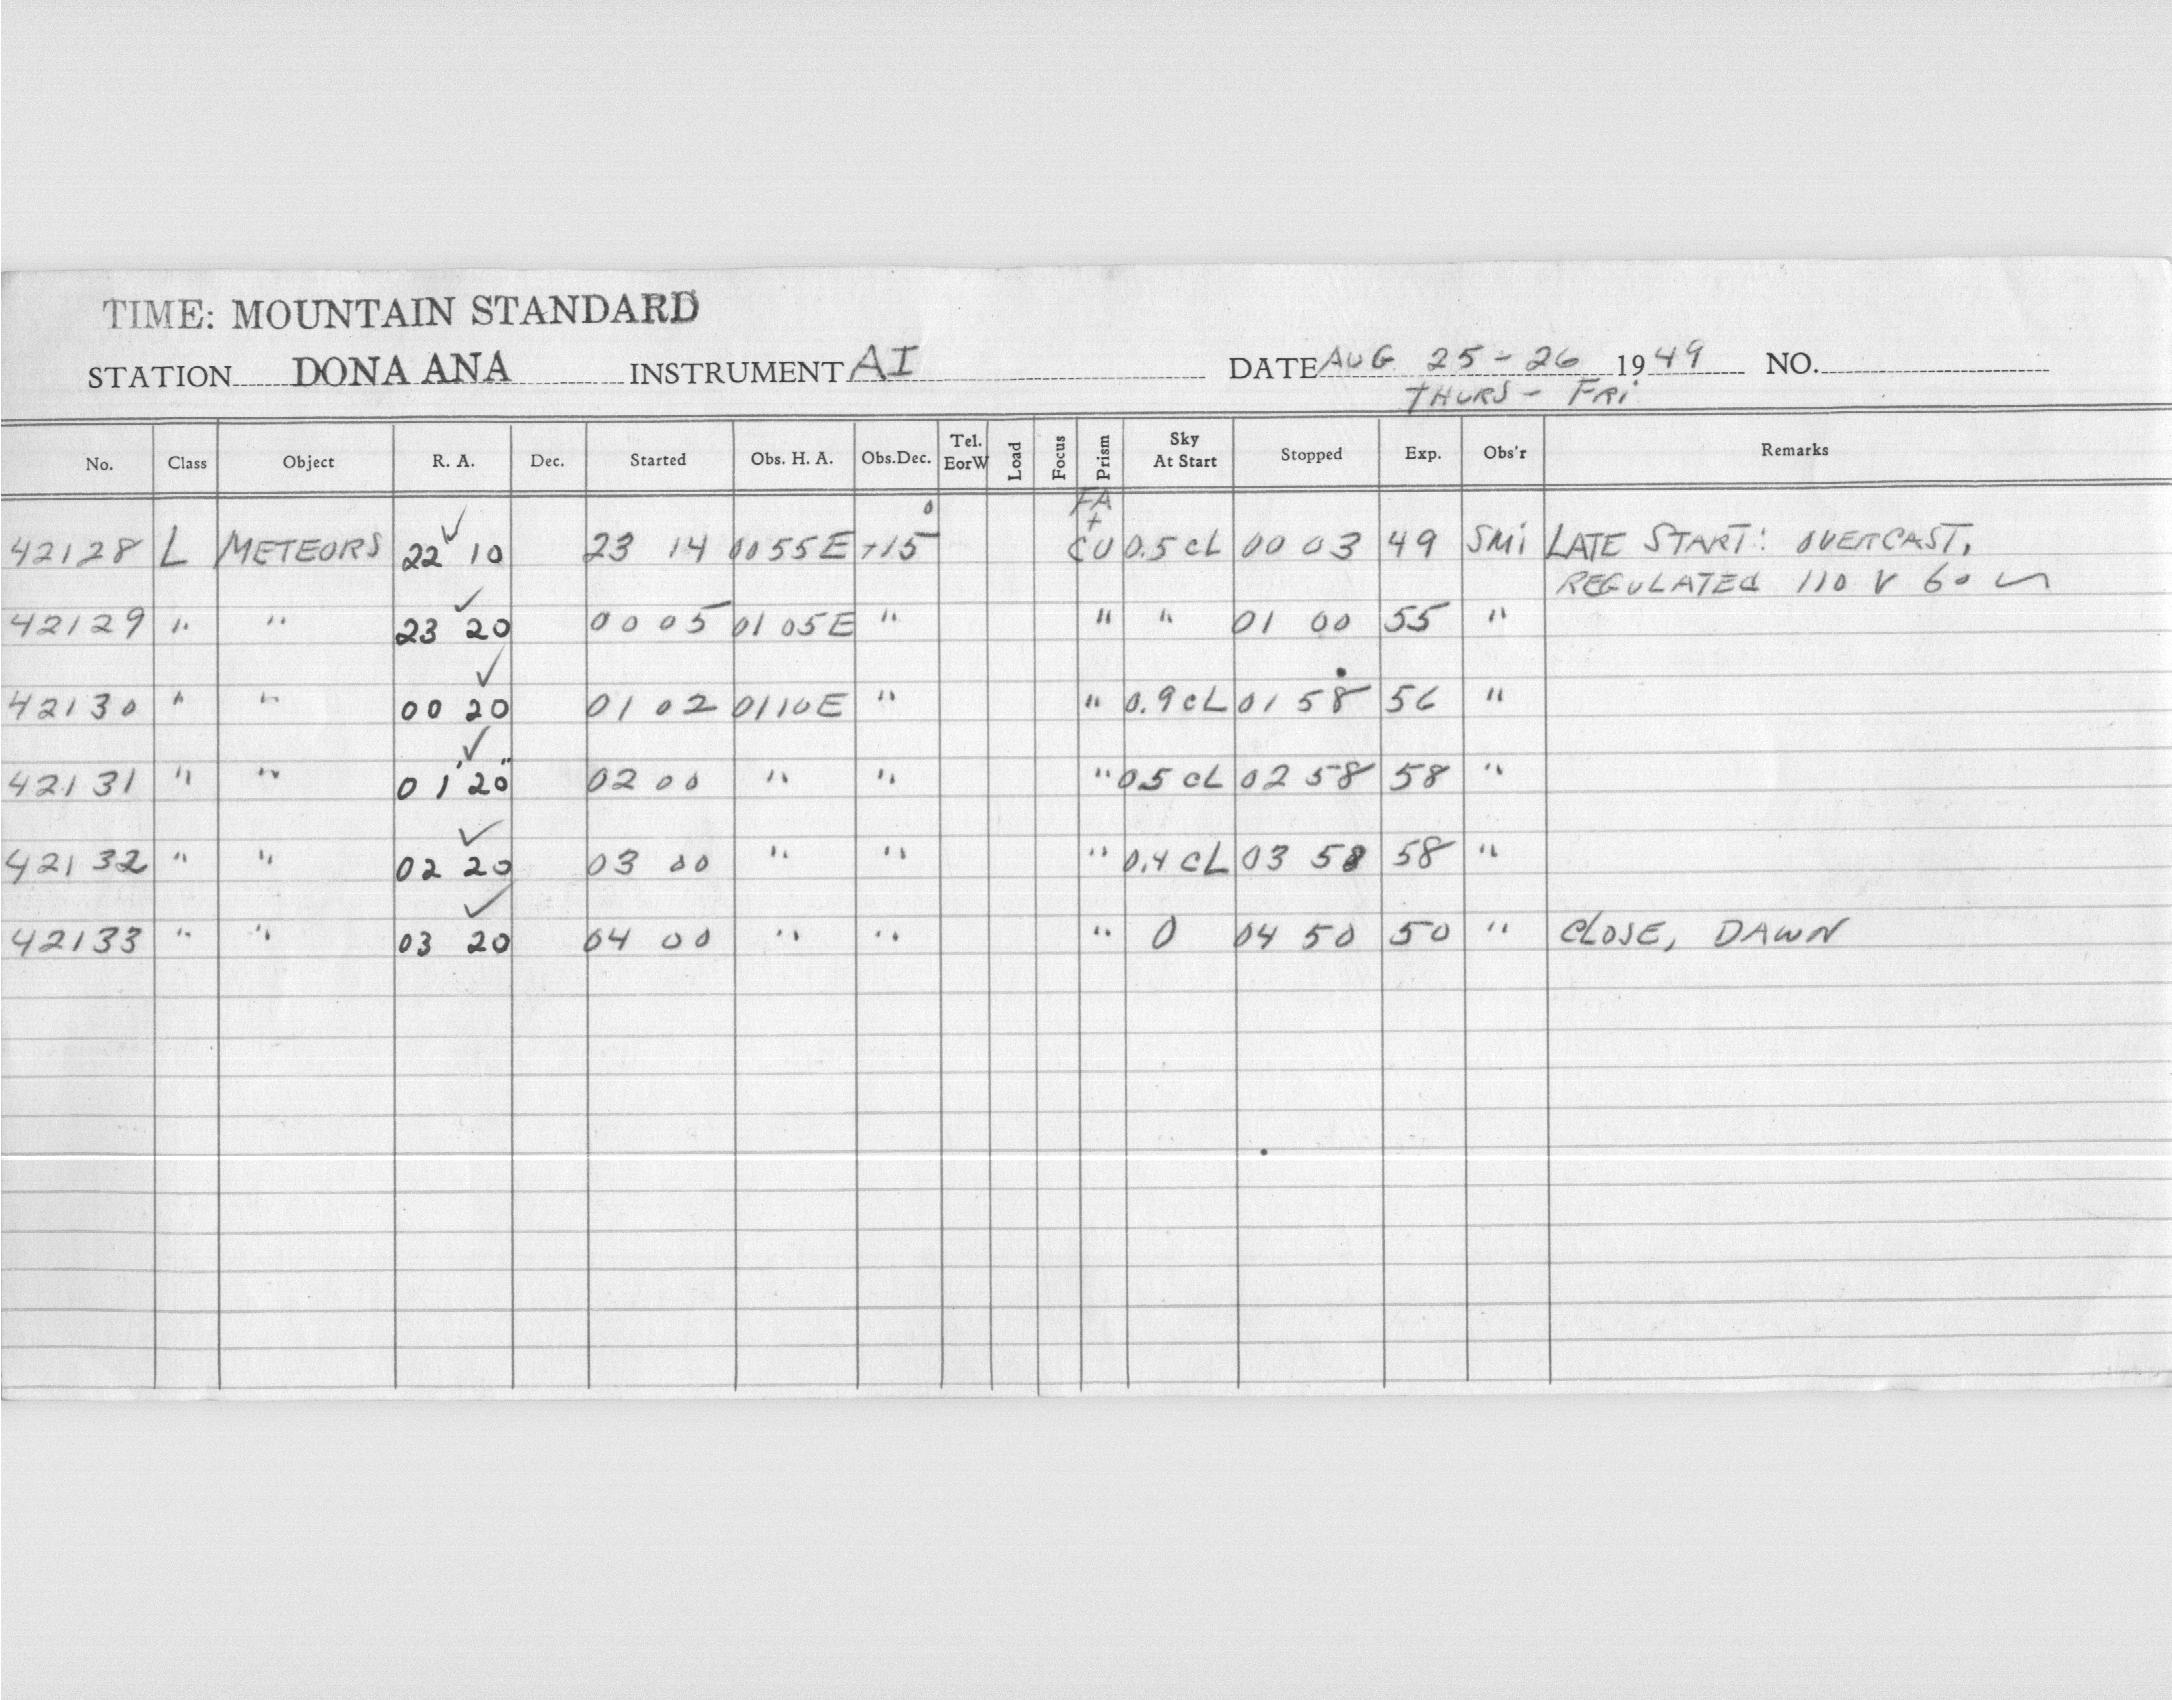 TIME: MOUNTAIN STANDARD
STATION DONA ANA INSTRUMENT AI DATE AUG 25-26 1949 NO.
THURS - FRI
No. Class Object R. A. Dec. Started Obs. H. A. Obs.Dec. Tel. EorW Load Focus Prism Sky At Start Stopped Exp. Obs'r Remarks
42128 L METEORS 22 10 23 14 0055E +15° FA + CU 0.5 CL 00 03 49 SMi LATE START: OVERCAST,
REGULATED 110 V 60 ~
42129 " " 23 20 00 05 01 05E " " " 01 00 55 "
42130 " " 00 20 01 02 0110E " " 0.9 CL 01 58 56 "
42131 " " 01 20 02 00 " " " 0.5 CL 02 58 58 "
42132 " " 02 20 03 00 " " " 0.4 CL 03 58 58 "
42133 " " 03 20 04 00 " " " 0 04 50 50 " CLOSE, DAWN